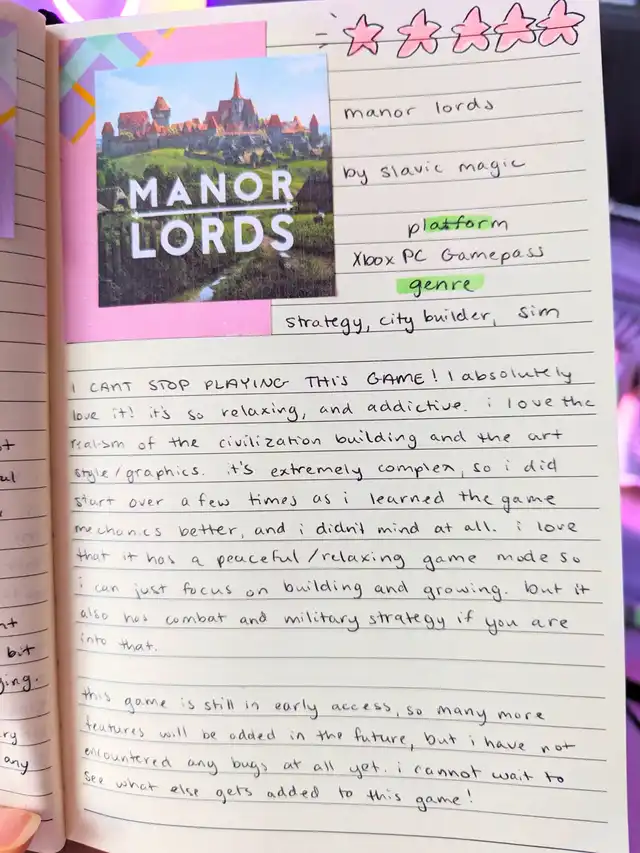 MANOR
LORDS
manor lords
by slavic magic
platform
Xbox PC Gamepass
genre
strategy, city builder, sim
I CANT STOP PLAYING THIS GAME! I absolutely
love it! it's so relaxing, and addictive. i love the
realism of the civilization building and the art
style/graphics. it's extremely complex, so i did
start over a few times as i learned the game
mechanics better, and i didn't mind at all. i love
that it has a peaceful/relaxing game mode so
i can just focus on building and growing. but it
also has combat and military strategy if you are
into that.
this game is still in early access, so many more
features will be added in the future, but i have not
encountered any bugs at all yet. i cannot wait to
see what else gets added to this game!
bit
any